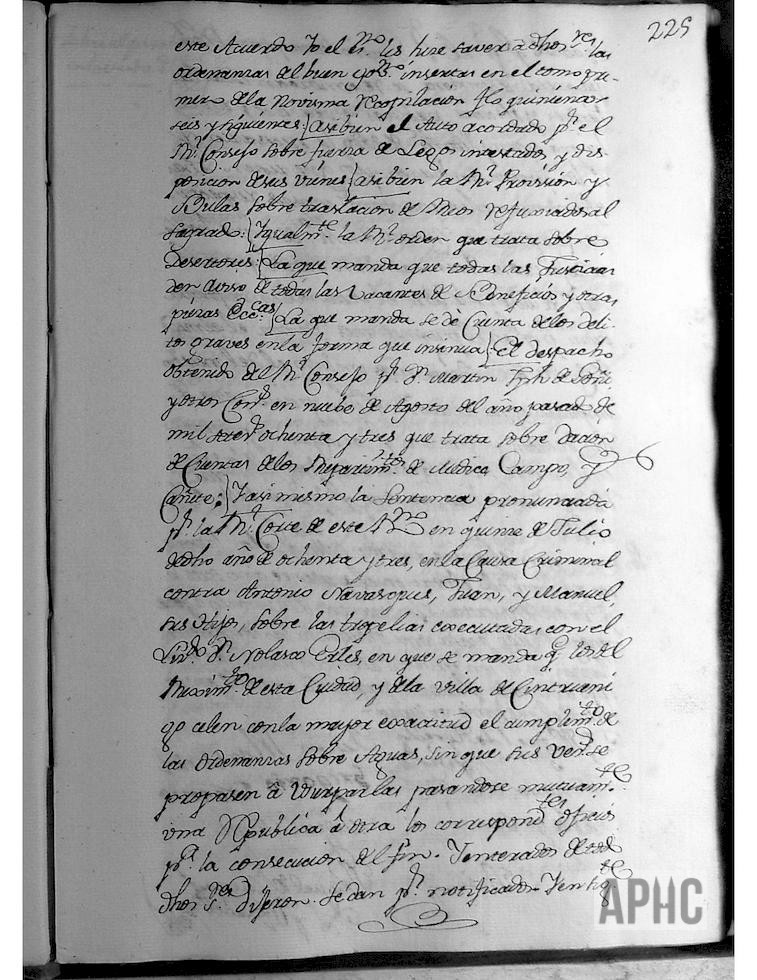 225
este Acuerdo Yo el ess.no les hize saver â dhos s.res las
ordenanzas del buen gob.no insertas en el tomo pri-
mero de la Novisima recopilacion
seis y siguientes: asi bien el Auto acordado p.r el
R.l Consejo sobre de Legos intestados, y dis-
posicion de sus vienes asi bien la R.l Provision y
Bulas sobre traslacion de Reos refuxiados al
sagrado: Igualm.te la R.l orden que trata sobre
Desertores: La que manda que todas las Justicias
den aviso de todas las Vacantes de Beneficios y otras
piezas Ecc.cas La que manda se dè Cuenta de los deli-
tos graves en la forma que insinua: El despacho
obtenido del R.l Consejo p.r D.n Martin de
y otros Con.s en nuebe de Agosto del año pasado de
mil sètez.s ochenta y tres que trata sobre dacion
de Cuentas de los Repartim.tos de Medico, Campo, y
Cañete; Y asi mismo la Sentencia pronunciada
p.r la R.l Corte de este R.no en quinze de Julio
de dho año de ochenta y tres, en la Causa Criminal
contra Antonio Navasques, Juan, y Manuel,
sus Hijos, sobre las tropelias executadas con el
Liz.do D.n Nolasco en que se manda q.e los del
Reximt.o de esta Ciudad, y de la villa de Cintrueni
go celen con la mayor exactitud el cumplim.to de
las Ordenanzas sobre Aguas, sin que sus vez.s se
propasen â usurparlas pasandose mutuam.te
una Republica â otra los correspond.tes oficios
p.a la consecucion del fin. Y enterados de todo
dhos s.res dijeron se dan p.r notificados Y en fe
APHC